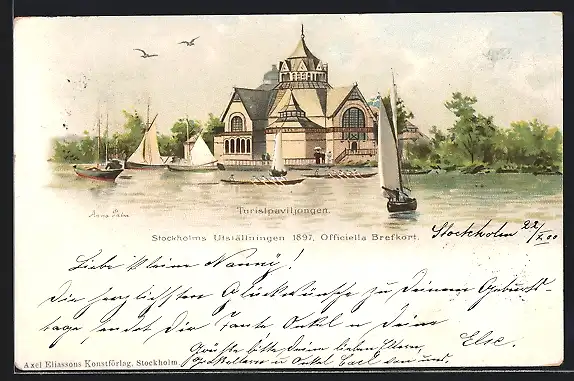 Anna Palm
Turistpaviljongen.
Stockholms Utställningen 1897, Officiella Brefkort.
Stockholm 22/X.00
Liebe kleine Nanny!
Die herzlichsten Glückwünsche zu Deinem Geburts-
tage sendet Dir Tante Onkel u Deine
Else.
Grüsse bitte Deine lieben Eltern,
Grosseltern u Onkel Carl
Axel Eliassons Konstförlag, Stockholm.